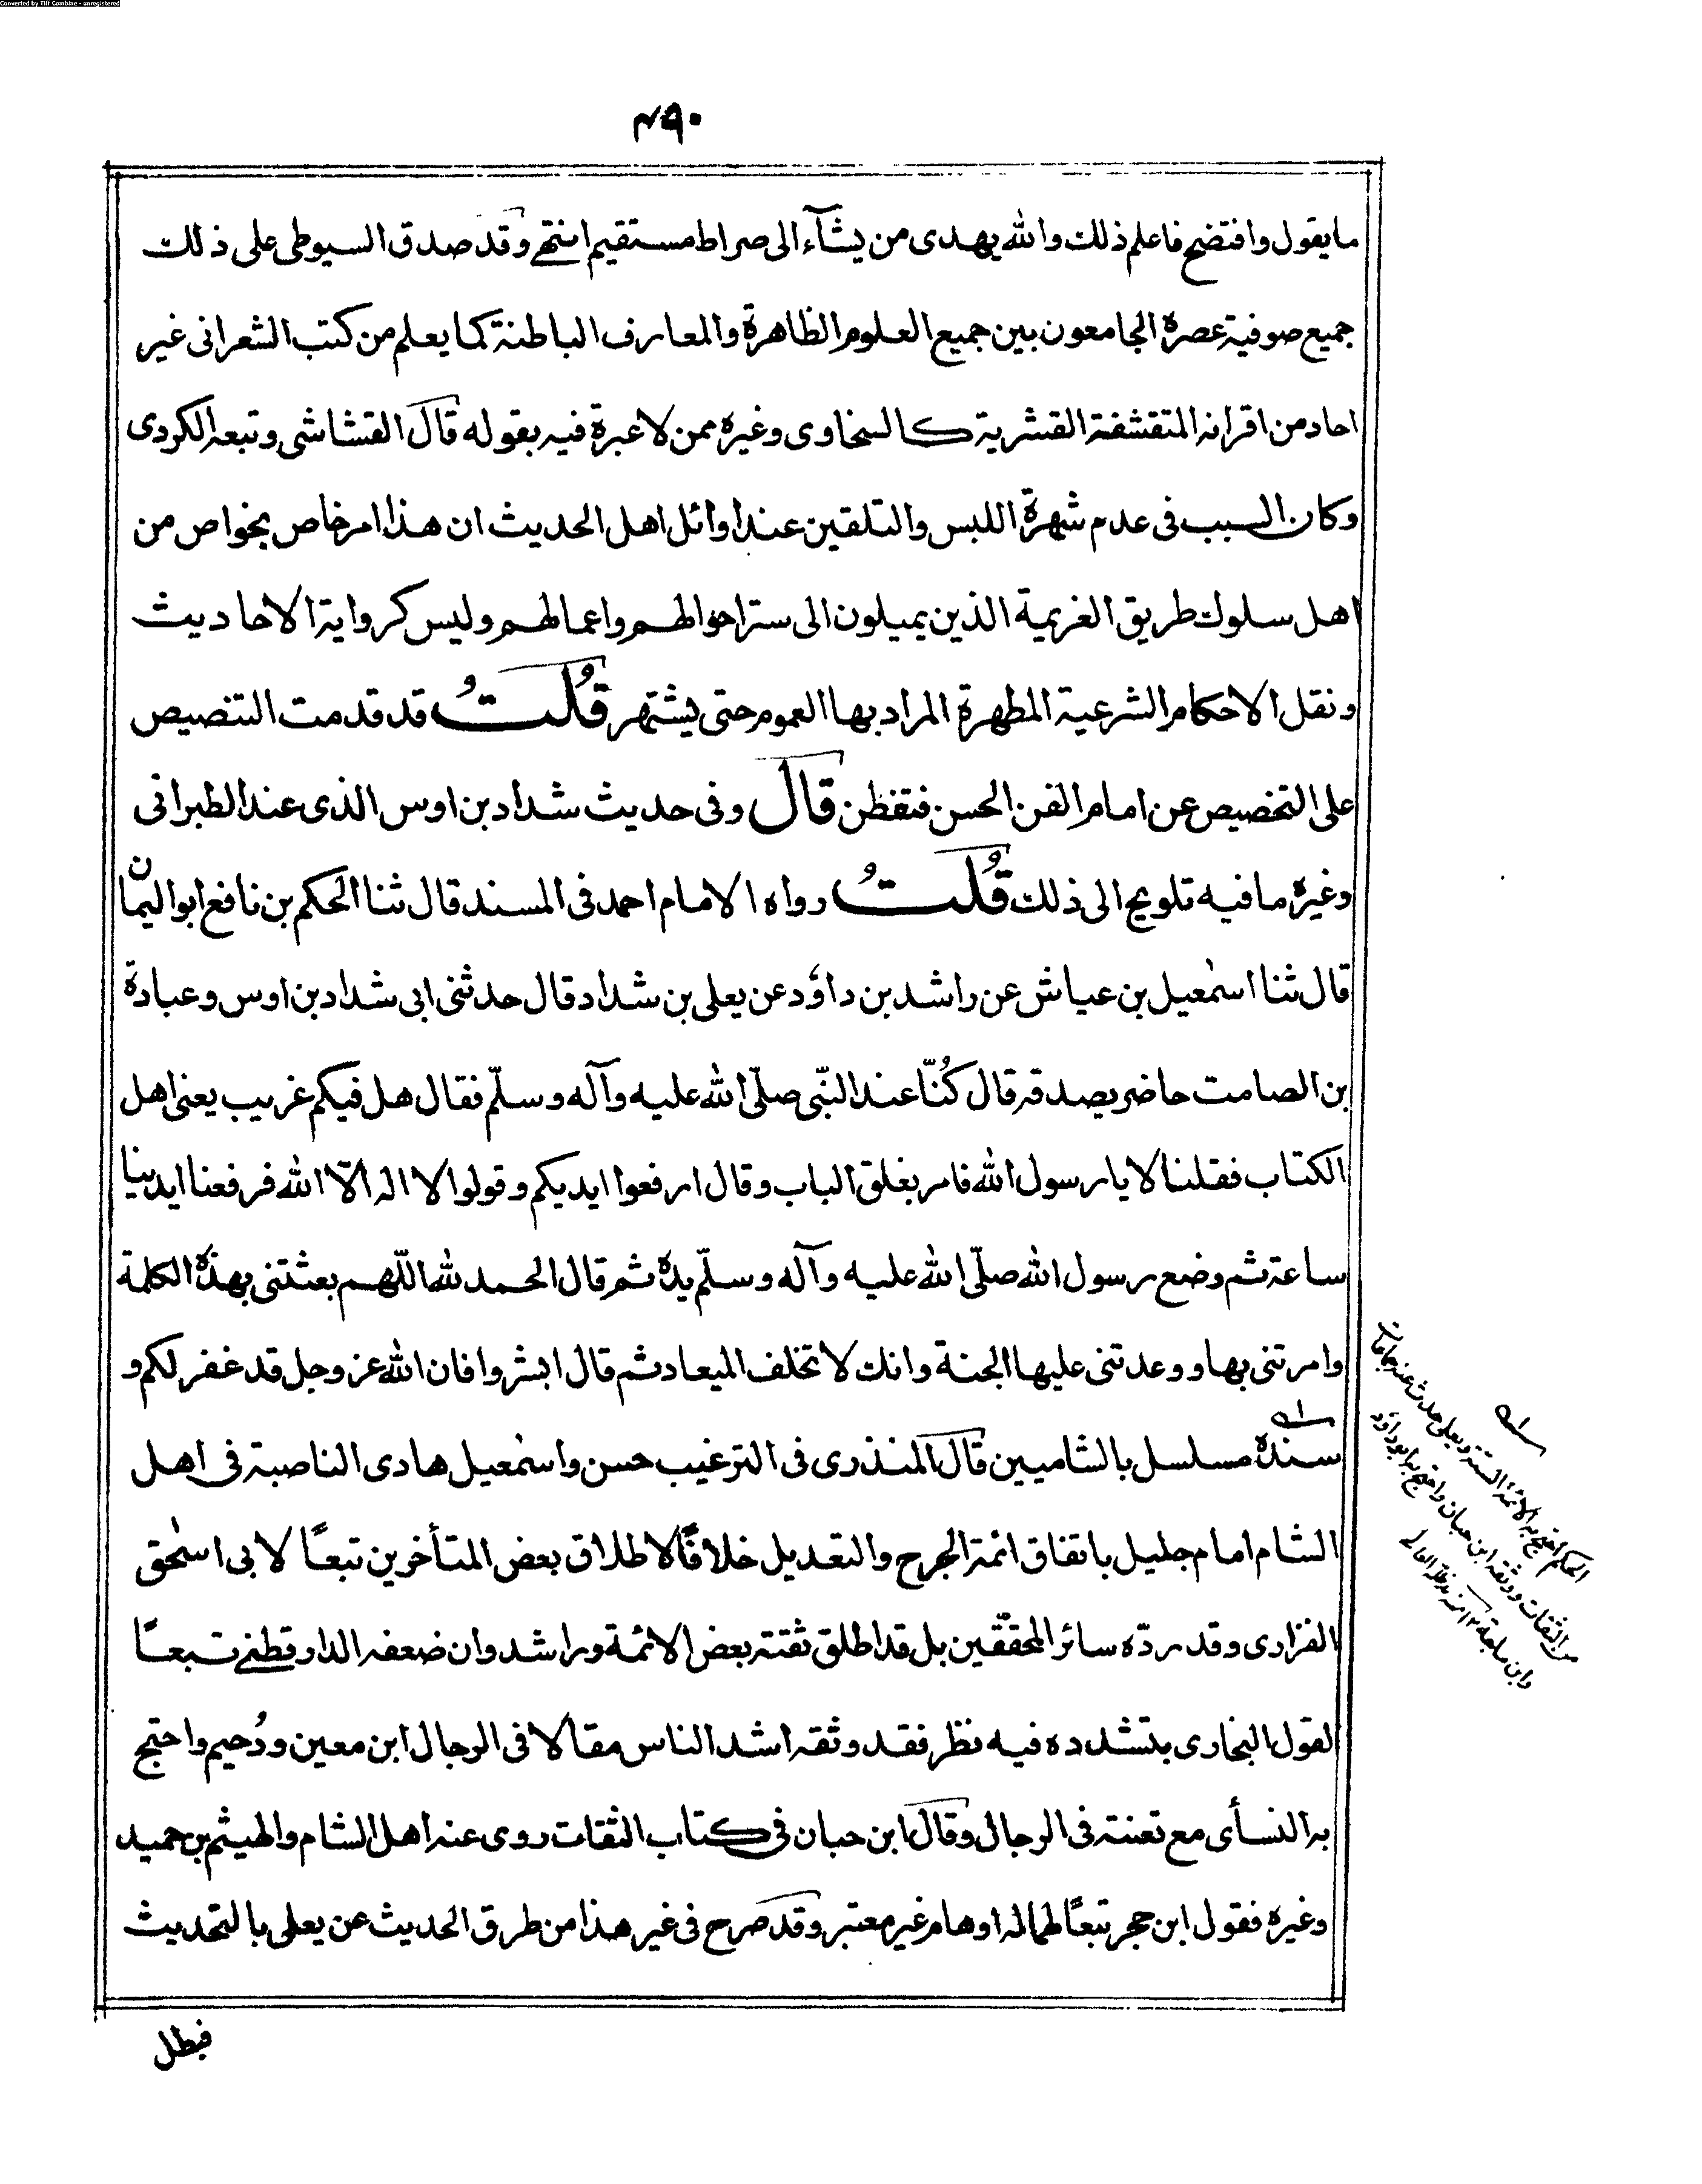 Converted by Tiff Combine - unregistered
٤٩٠
ما يقول وافتضح فاعلم ذلك والله يهدى من يشآء الى صراط مستقيم انتهى وقد صدق السيوطى على ذلك
جميع صوفية عصرة الجامعون بين جميع العلوم الظاهرة والمعارف الباطنة كما يعلم من كتب الشعرانى غير
احاد من اقرانه المتقشفة القشرية كالسخاوى وغيره ممن لا عبرة فيه بقوله قال القشاشى وتبعه الكردى
وكان السبب فى عدم شهرة اللبس والتلقين عند اوائل اهل الحديث ان هذا امر خاص بخواص من
اهل سلوك طريق الغريمة الذين يميلون الى ستر احوالهم واعمالهم وليس كرواية الاحاديث
ونقل الاحكام الشرعية المطهرة المراد بها العموم حتى يشتهر قُلتُ قد قدمت التنصيص
على التخصيص عن امام الفن الحسن فتفطن قال وفى حديث شداد بن اوس الذى عند الطبرانى
وغيره ما فيه تلويح الى ذلك قُلتُ رواه الامام احمد فى المسند قال ثنا الحكم بن نافع ابو اليمان
قال ثنا اسمٰعيل بن عياش عن راشد بن داؤد عن يعلى بن شداد قال حدثنى ابى شداد بن اوس وعبادة
بن الصامت حاضر يصدقه قال كُنّا عند النّبى صلّى الله عليه وآله وسلّم فقال هل فيكم غريب يعنى اهل
الكتاب فقلنا لا يا رسول الله فامر بغلق الباب وقال ارفعوا ايديكم وقولوا لا اله الّا الله فرفعنا ايدينا
ساعة ثم وضع رسول الله صلّى الله عليه وآله وسلّم يده ثم قال الحمد لله اللّهم بعثتنى بهذه الكلمة
وامرتنى بها ووعدتنى عليها الجنة وانك لا تخلف الميعاد ثم قال ابشروا فان الله عز وجل قد غفر لكم و
سنده مسلسل بالشاميين قال المنذرى فى الترغيب حسن واسمٰعيل هادى الناصبة فى اهل
الشام امام جليل باتفاق ائمة الجرح والتعديل خلافًا لاطلاق بعض المتأخرين تبعًا لابى اسحٰق
الفزارى وقد ردّه سائر المحققين بل قد اطلق ثقته بعض الائمة وراشد وان ضعفه الداوقطنى تبعًا
لقول البخارى بتشدده فيه نظر فقد وثقه اشد الناس مقالا فى الرجال ابن معين ودُحيم واحتج
به النسأى مع تعنته فى الرجال وقال ابن حبان فى كتاب الثقات روى عنه اهل الشام والهيثم بن حميد
وغيره فقول ابن حجر تبعًا لهما له اوهام غير معتبر وقد صرح فى غير هذا من طرق الحديث عن يعلى بالتحديث
فبطل
الحكم احتج به الائمة الستة ويعلى حدث عنه جماعات
من الثقات ووثقه ابن حبان واحتج به ابو داؤد
وابن ماجة ١٢ منه